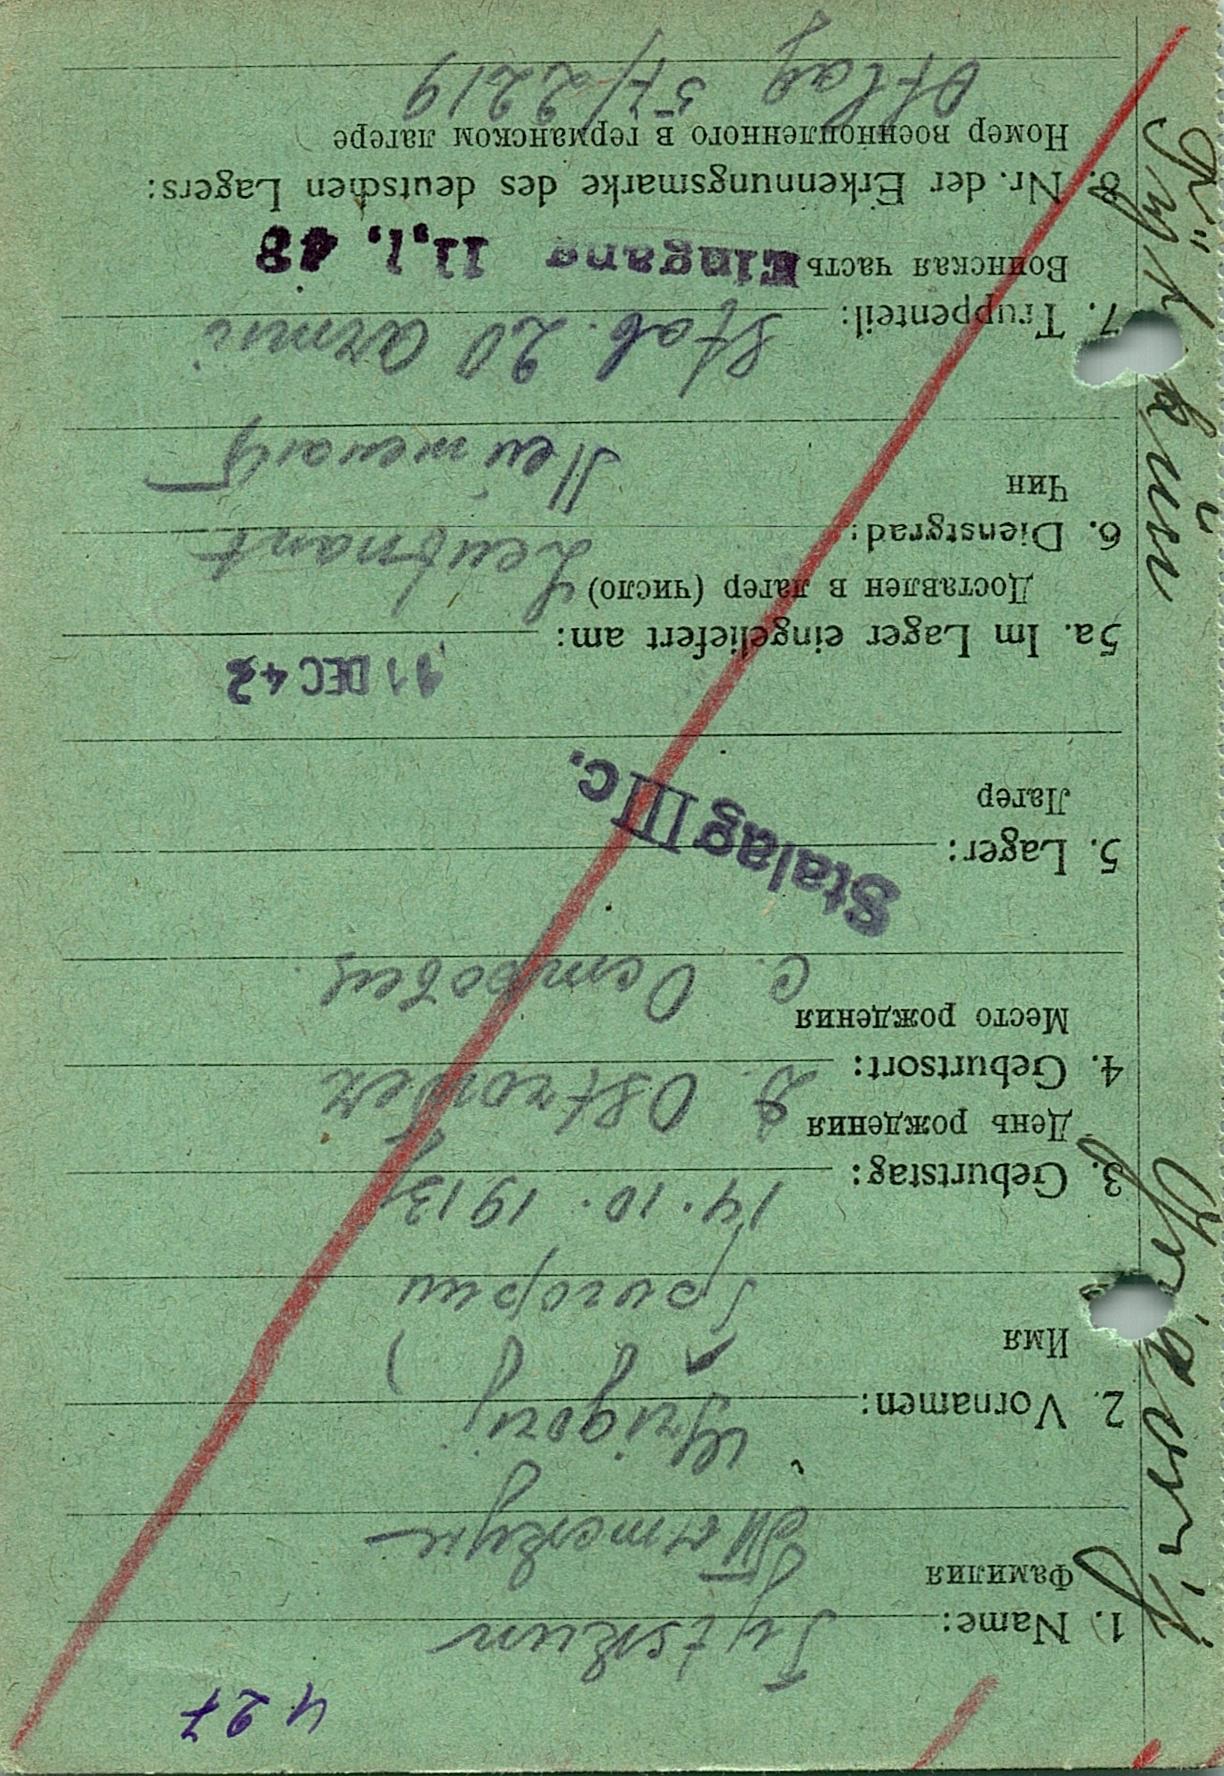 427
1. Name: Pytskun
Фамилия
2. Vornamen: Grigorij
Имя Григории
3. Geburtstag: 14.10.1913
День рождения
4. Geburtsort: D. Ostrowez
Место рождения
с. Островец
5. Lager: Stalag IIIc.
Лагер
11 DEC 42
5a. Im Lager eingeliefert am:
Доставлен в лагер (число)
6. Dienstgrad: Leutnant
Чин
Лейтенант
7. Truppenteil: Stab. 20 armii
Воинская часть Eingang 11.1.43
8. Nr. der Erkennungsmarke des deutschen Lagers:
Номер военнопленного в германском лагере
Oflag 57/2219
Grigorij